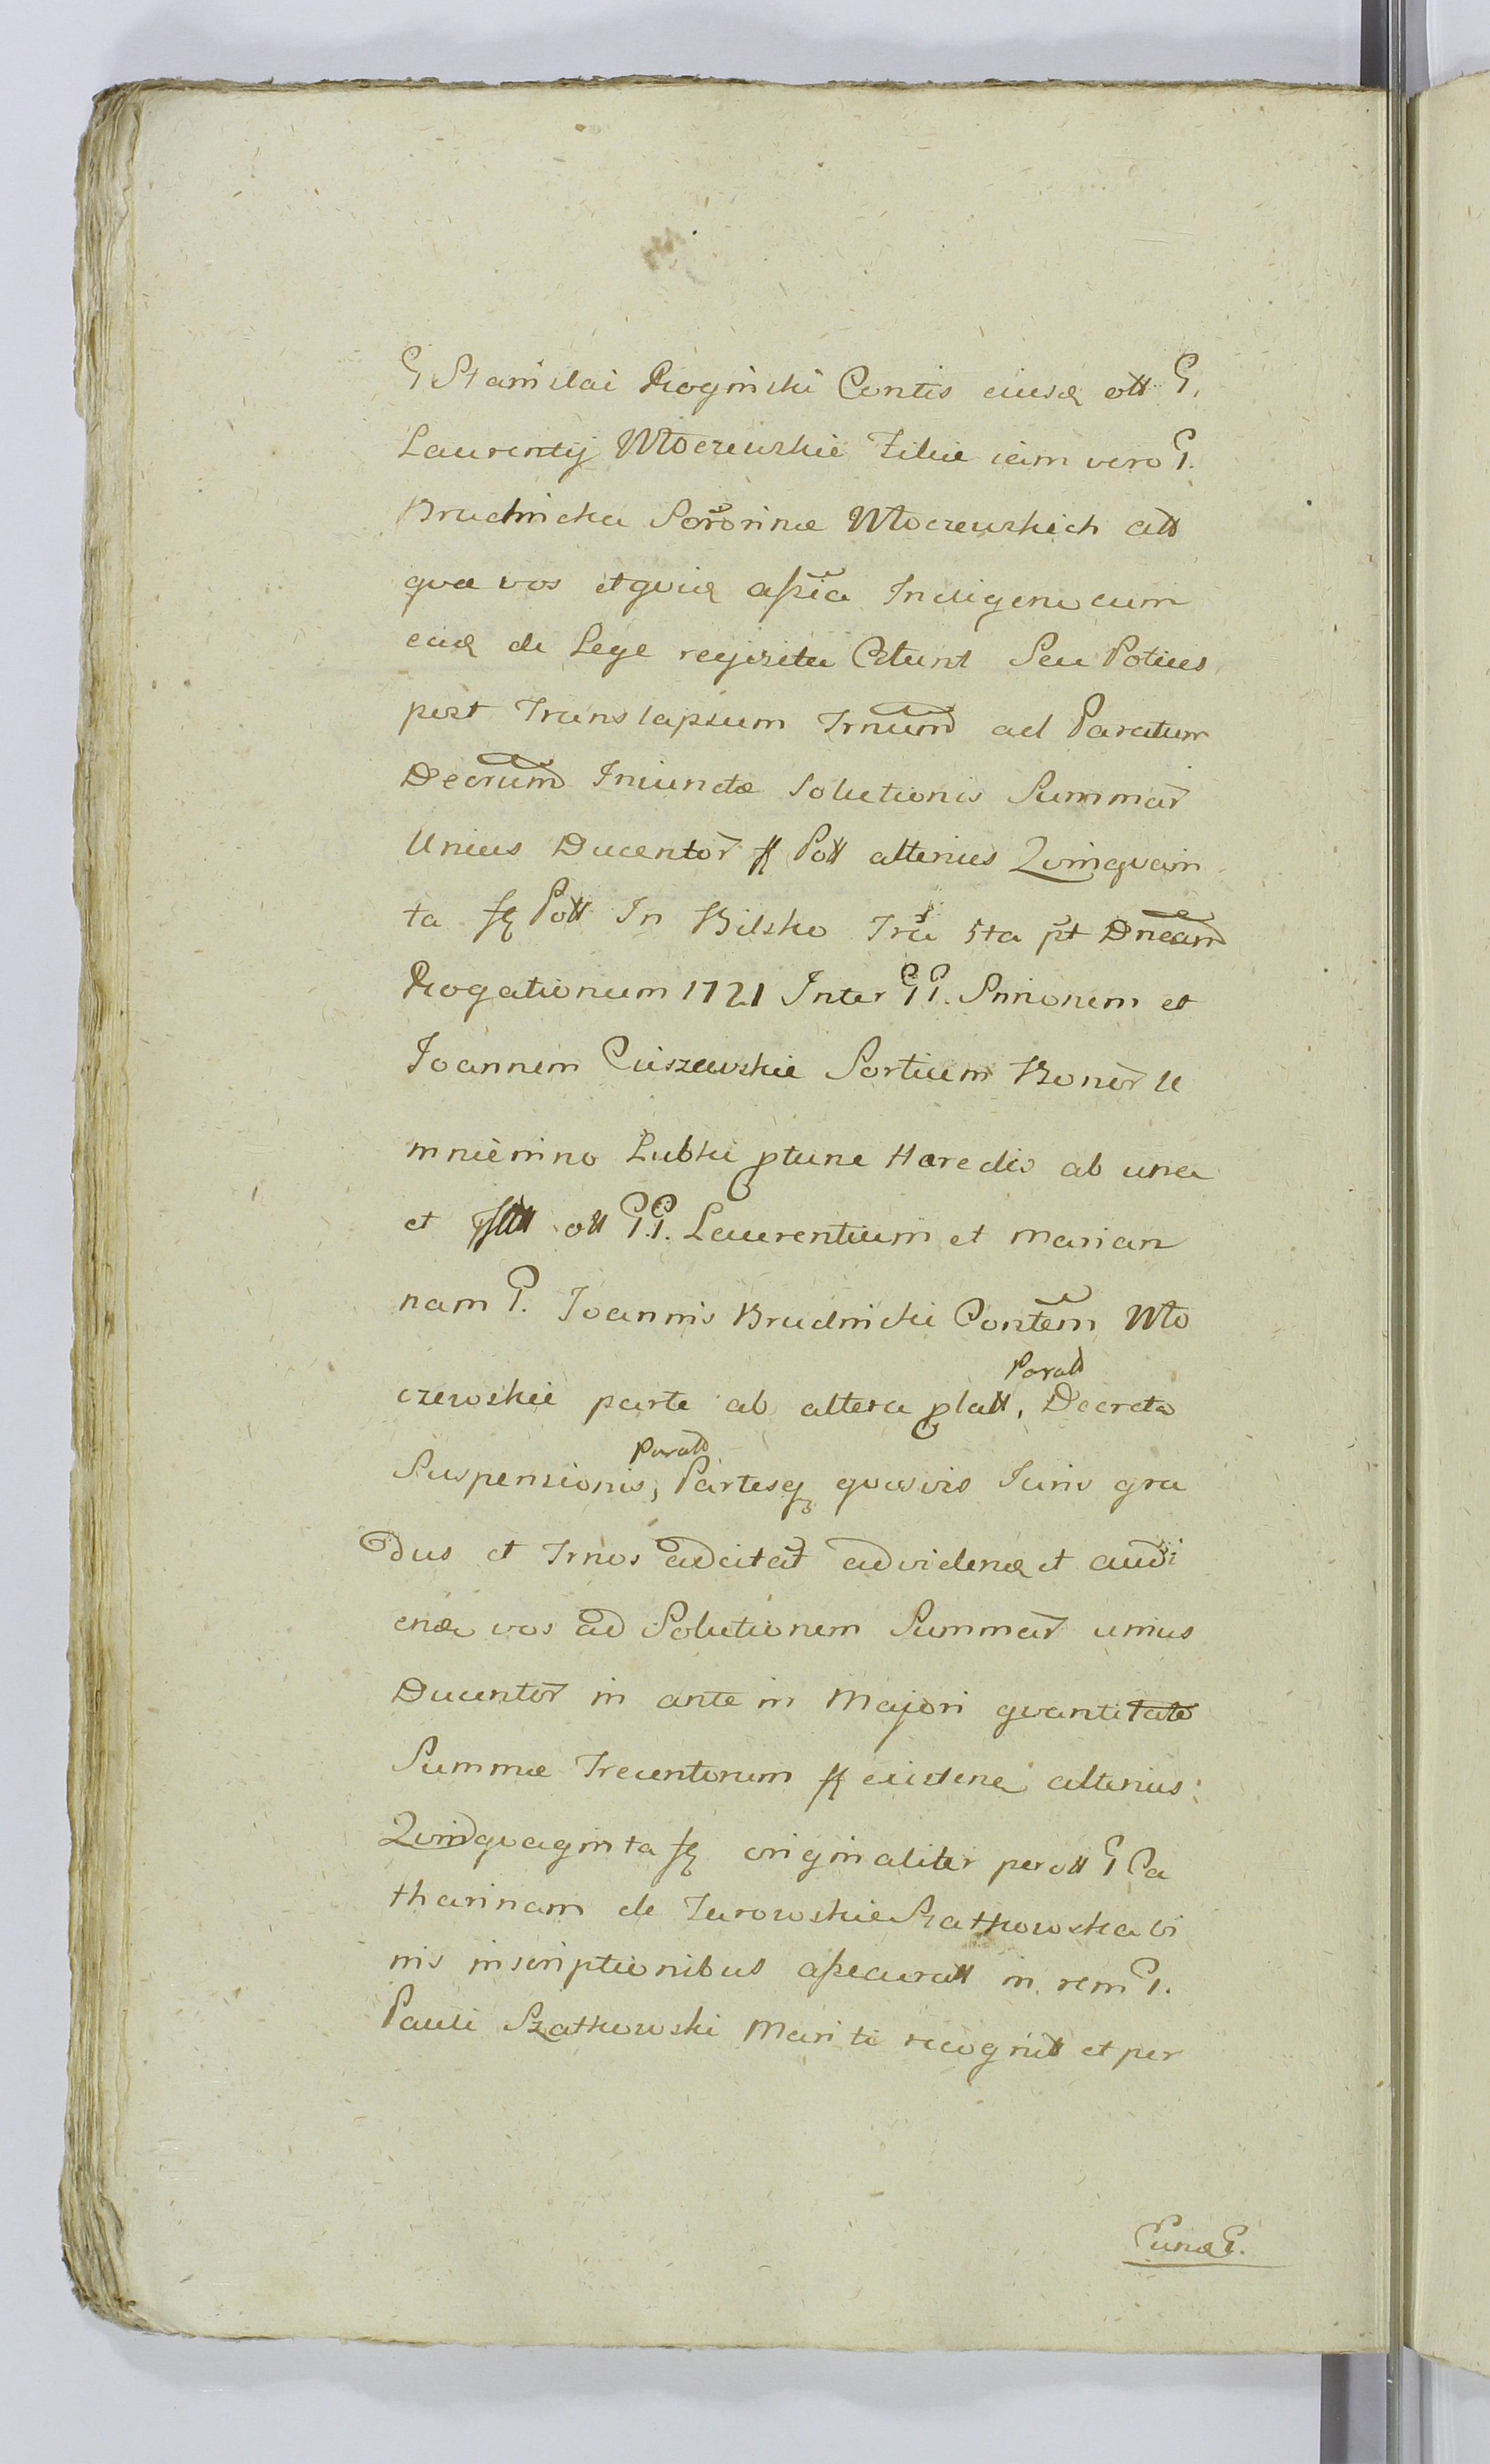 G Stanislai Roginski Contis eiusd olt G.
Laurentij Włoczewskie Filie iam vero G.
Brudnicka Sororinæ Włoczewskich alt
quæ vos etquid assia Indigena cum
ead de Lege regisita Cetunt Seu Potius
post Translapsum Trnum ad Paratum
Decrum Iniunctæ Solutionis Summar
Unius Ducentor ff Poll alterius Quinquain
ta ff Poll In Bilsko Tra 5ta pt Dneam
Rogationum 1721 Inter GG. Smionem et
Joannem Ciszewskie Sortium Bonor U
mniemino Lubki ptune Haredis ab una
et olt GG. Laurentium et marian
nam G. Joannis Brudnicki Contem Wło
czewskie parte ab altera plat, Paralt Decreta
Suspensionis, Paralt Partesq quosvis Iuris gra
dus et Trnos adcitat advidend et audi
end vos ad Solutionem Summar unius
Ducentor in ante in Majori quantitate
Summæ Trecentorum ff existend alterius
Quindquaginta ff originaliter perolt G Ca
tharinam de Zurowskie Szatkowska bi
nis inscriptionibus assecurat in rem G.
Pauli Szatkowski Mariti recognit et per
Cund G.